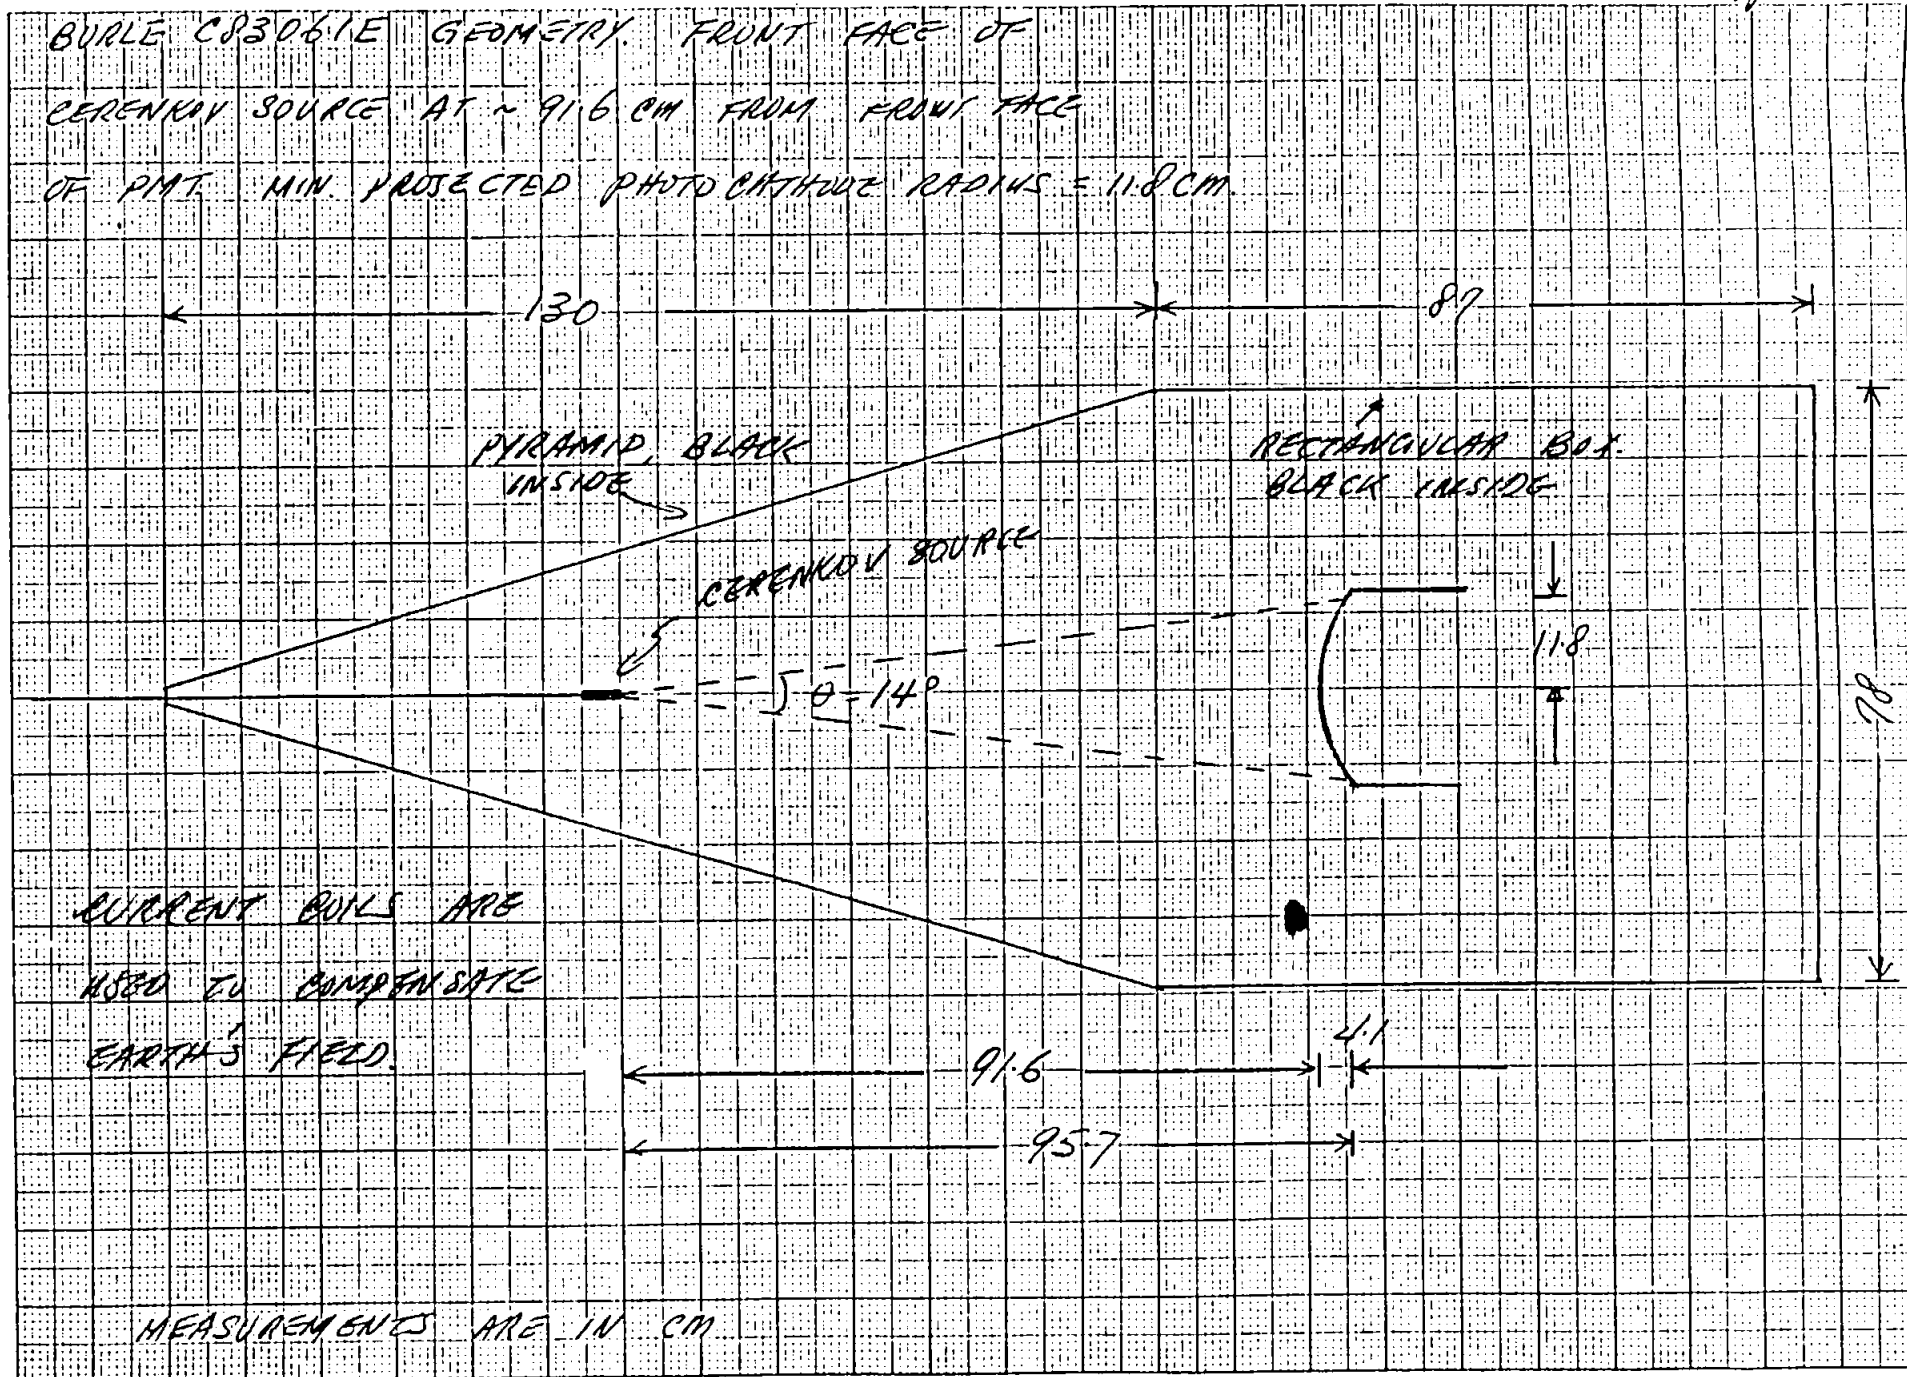 BURLE C83061E GEOMETRY. FRONT FACE OF
CERENKOV SOURCE AT ~ 91.6 CM FROM FRONT FACE
OF PMT. MIN. PROJECTED PHOTOCATHODE RADIUS = 11.8 CM.
130
87
PYRAMID, BLACK
INSIDE
RECTANGULAR BOX.
BLACK INSIDE
CERENKOV SOURCE
11.8
θ = 14°
78
CURRENT COILS ARE
USED TO COMPENSATE
EARTH'S FIELD.
4.1
91.6
95.7
MEASUREMENTS ARE IN CM